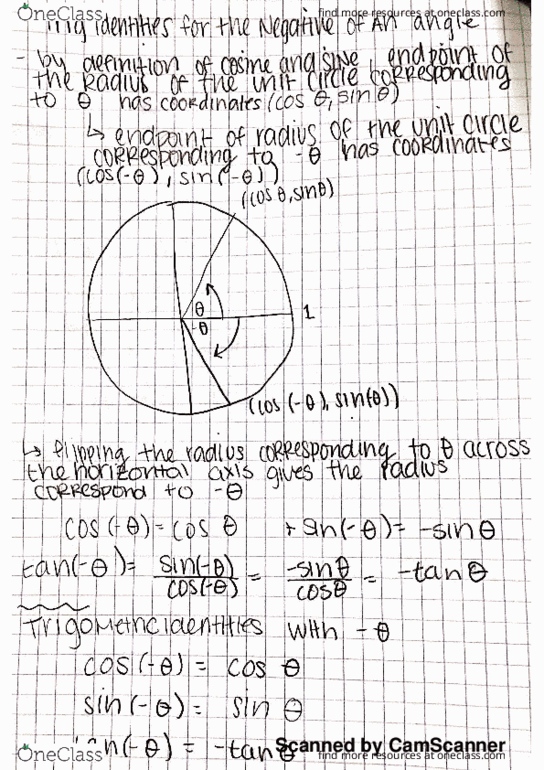 OneClass
find more resources at oneclass.com
Trig identities for the Negative of An angle
- by definition of cosine and sine, endpoint of
the Radius of the unit circle corresponding
to θ has coordinates (cos θ, sin θ)
↳ endpoint of radius of the unit circle
corresponding to -θ has coordinates
(cos(-θ), sin(-θ))
(cos θ, sin θ)
θ
1
-θ
(cos (-θ), sin(θ))
↳ flipping the radius corresponding to θ across
the horizontal axis gives the radius
correspond to -θ
cos(-θ) = cos θ + sin(-θ) = -sin θ
tan(-θ) = sin(-θ)/cos(-θ) = -sin θ/cos θ = -tan θ
Trigometric identities with -θ
cos(-θ) = cos θ
sin(-θ) = sin θ
tan(-θ) = -tan θ
Scanned by CamScanner
OneClass
find more resources at oneclass.com